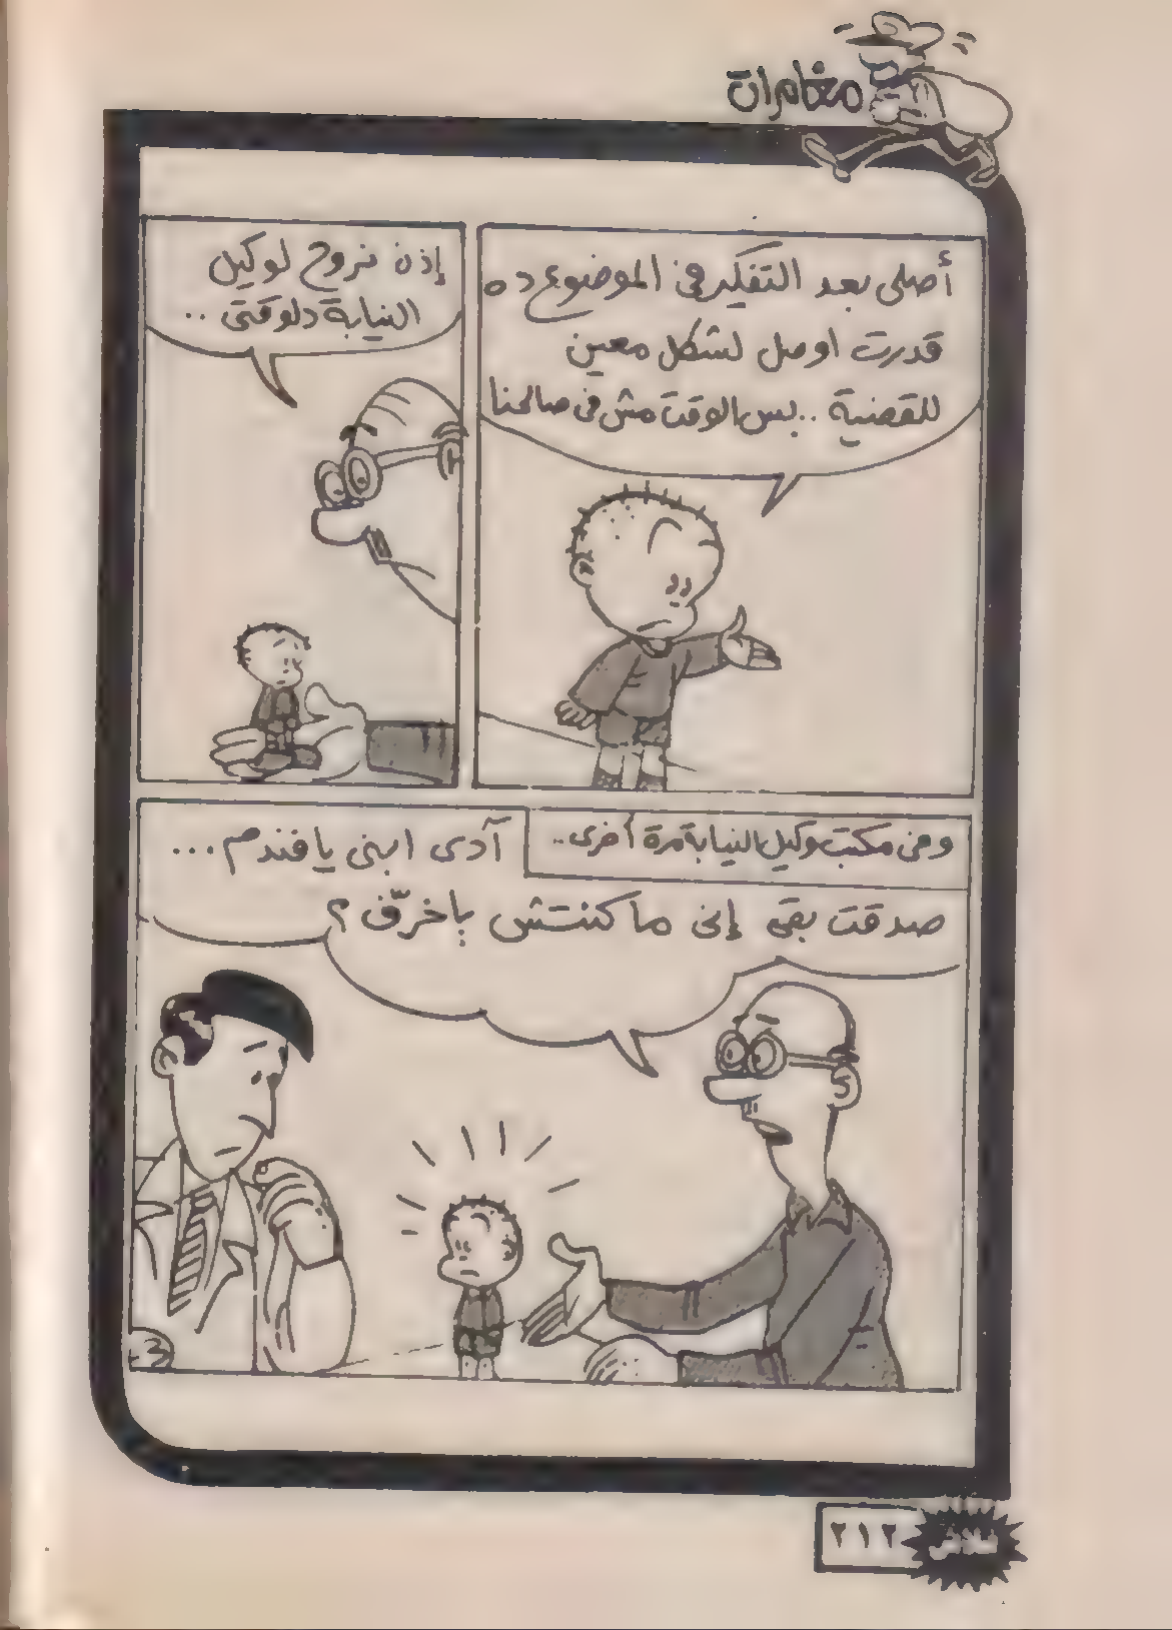 مغامرات
أصلى بعد التفكير فى الموضوع ده
قدرت اوصل لشكل معين
للقضية .. بس الوقت مش فى صالحنا
إذن نروح لوكيل
النيابة دلوقتى ..
وفى مكتب وكيل النيابة مرة أخرى ..
آدى ابنى يا فندم ...
صدقت بقى إنى ما كنتش باخرّف ؟
فلاش
٢١٢